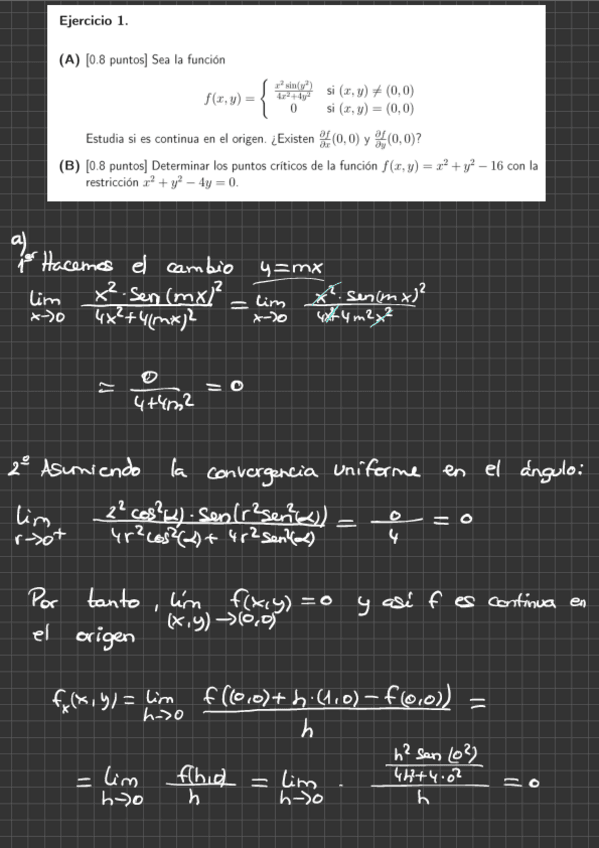 Ejercicio 1.
(A) [0.8 puntos] Sea la función
f(x, y) = { x² sin(y²) / 4x²+4y² si (x, y) ≠ (0, 0)
0 si (x, y) = (0, 0)
Estudia si es continua en el origen. ¿Existen ∂f/∂x (0, 0) y ∂f/∂y (0, 0)?
(B) [0.8 puntos] Determinar los puntos críticos de la función f(x, y) = x² + y² − 16 con la
restricción x² + y² − 4y = 0.
a)
1º Hacemos el cambio y=mx
lim x→0 x²·sen(mx)² / 4x²+4(mx)² = lim x→0 x²·sen(mx)² / 4x²+4m²x²
= 0 / 4+4m² = 0
2º Asumiendo la convergencia uniforme en el ángulo:
lim r→0⁺ 2² cos²(α)·sen(r²sen²(α)) / 4r²cos²(α)+4r²sen²(α) = 0/4 = 0
Por tanto, lim (x,y)→(0,0) f(x,y)=0 y así f es continua en
el origen
fx(x,y) = lim h→0 f((0,0)+h·(1,0)−f(0,0)) / h =
= lim h→0 f(h,0) / h = lim h→0 · h² sen(0²) / 4h²+4·0² / h = 0